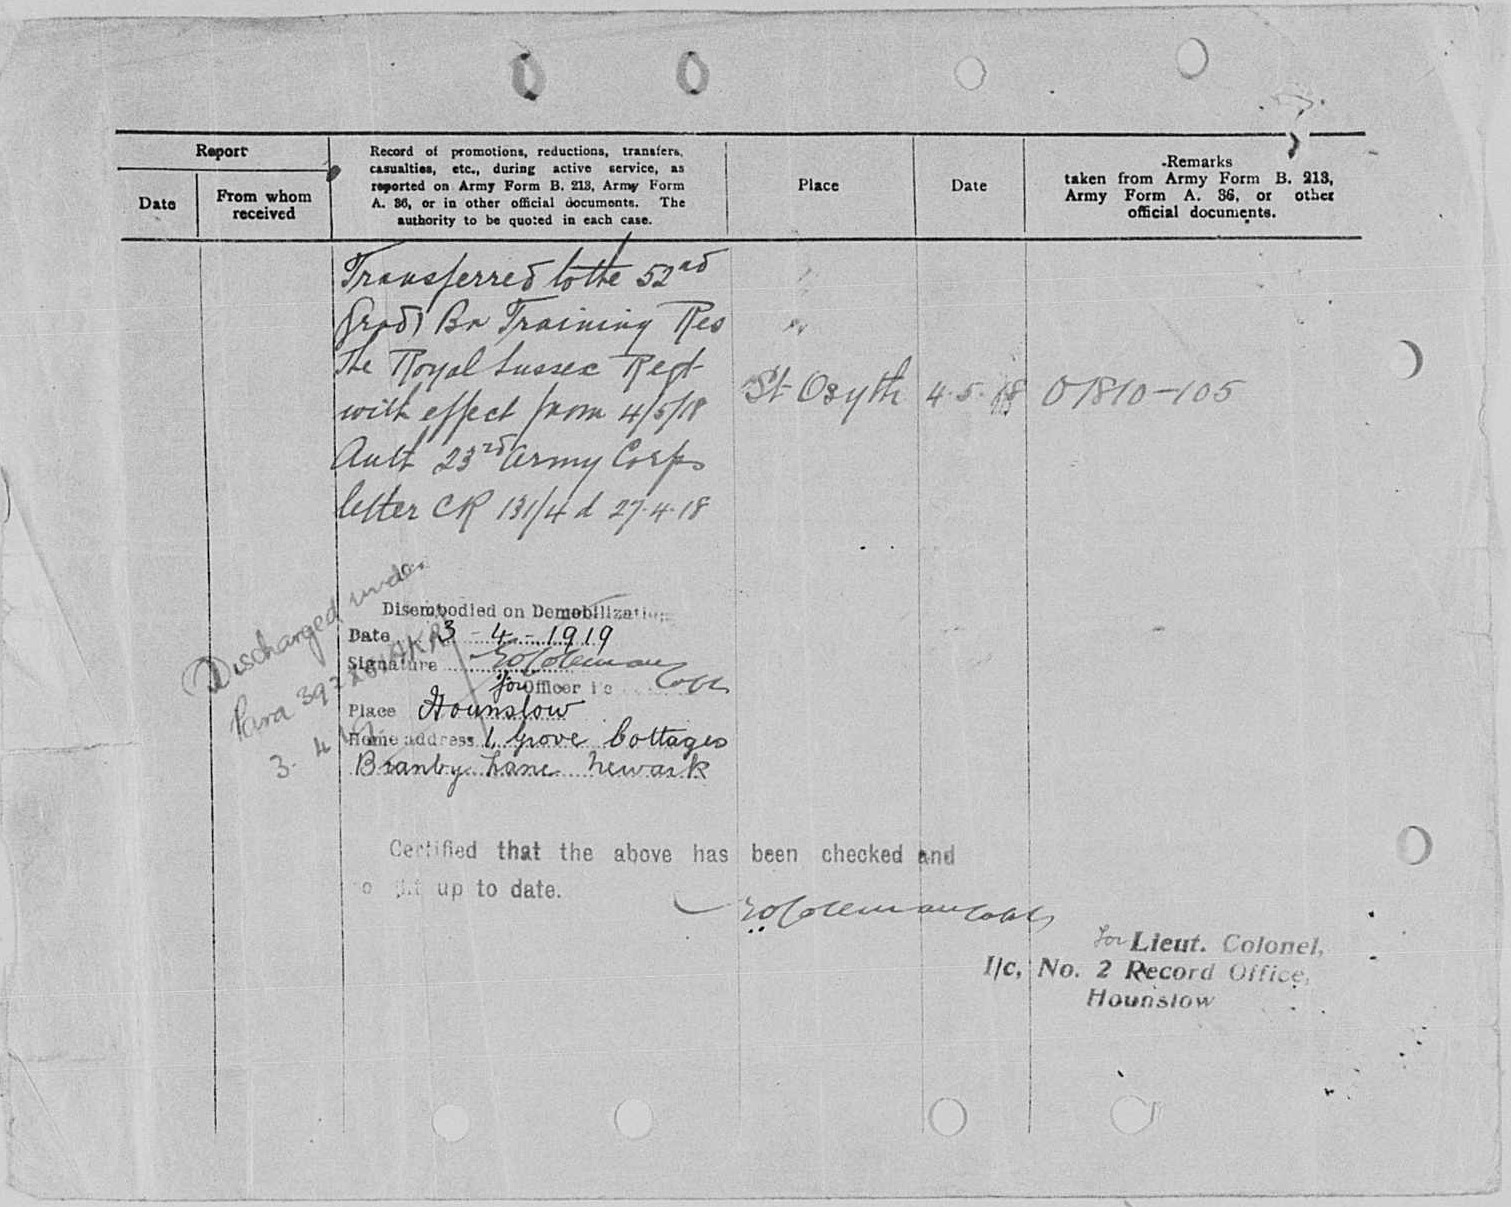 Report
Date
From whom
received
Record of promotions, reductions, transfers,
casualties, etc., during active service, as
reported on Army Form B. 213, Army Form
A. 36, or in other official documents. The
authority to be quoted in each case.
Place
Date
Remarks
taken from Army Form B. 213,
Army Form A. 36, or other
official documents.
Transferred to the 52nd
(Grad) Bn Training Res
The Royal Sussex Regt
with effect from 4/5/18
Auth 23rd Army Corps
letter CR 131/4 d 27.4.18
St Osyth
4.5.18
O/810-105
Discharged under
Para 392 KR
3. 4 19
Disembodied on Demobilization
Date 3-4-1919
Signature Coleman
for Officer i/c
Place Hounslow
Home address 1, Grove Cottages
Branby Lane Newark
Certified that the above has been checked and
up to date.
Coleman
for Lieut. Colonel,
I/c, No. 2 Record Office,
Hounslow